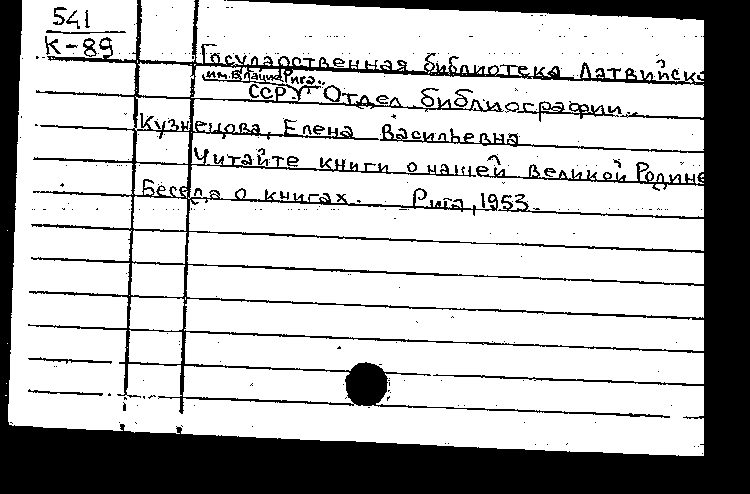 541
К-89
Государственная библиотека Латвийско
им. В. Лациса Рига.
ССР. Отдел библиографии.
Кузнецова, Елена Васильевна
Читайте книги о нашей великой Родине
Беседа о книгах. Рига, 1953.